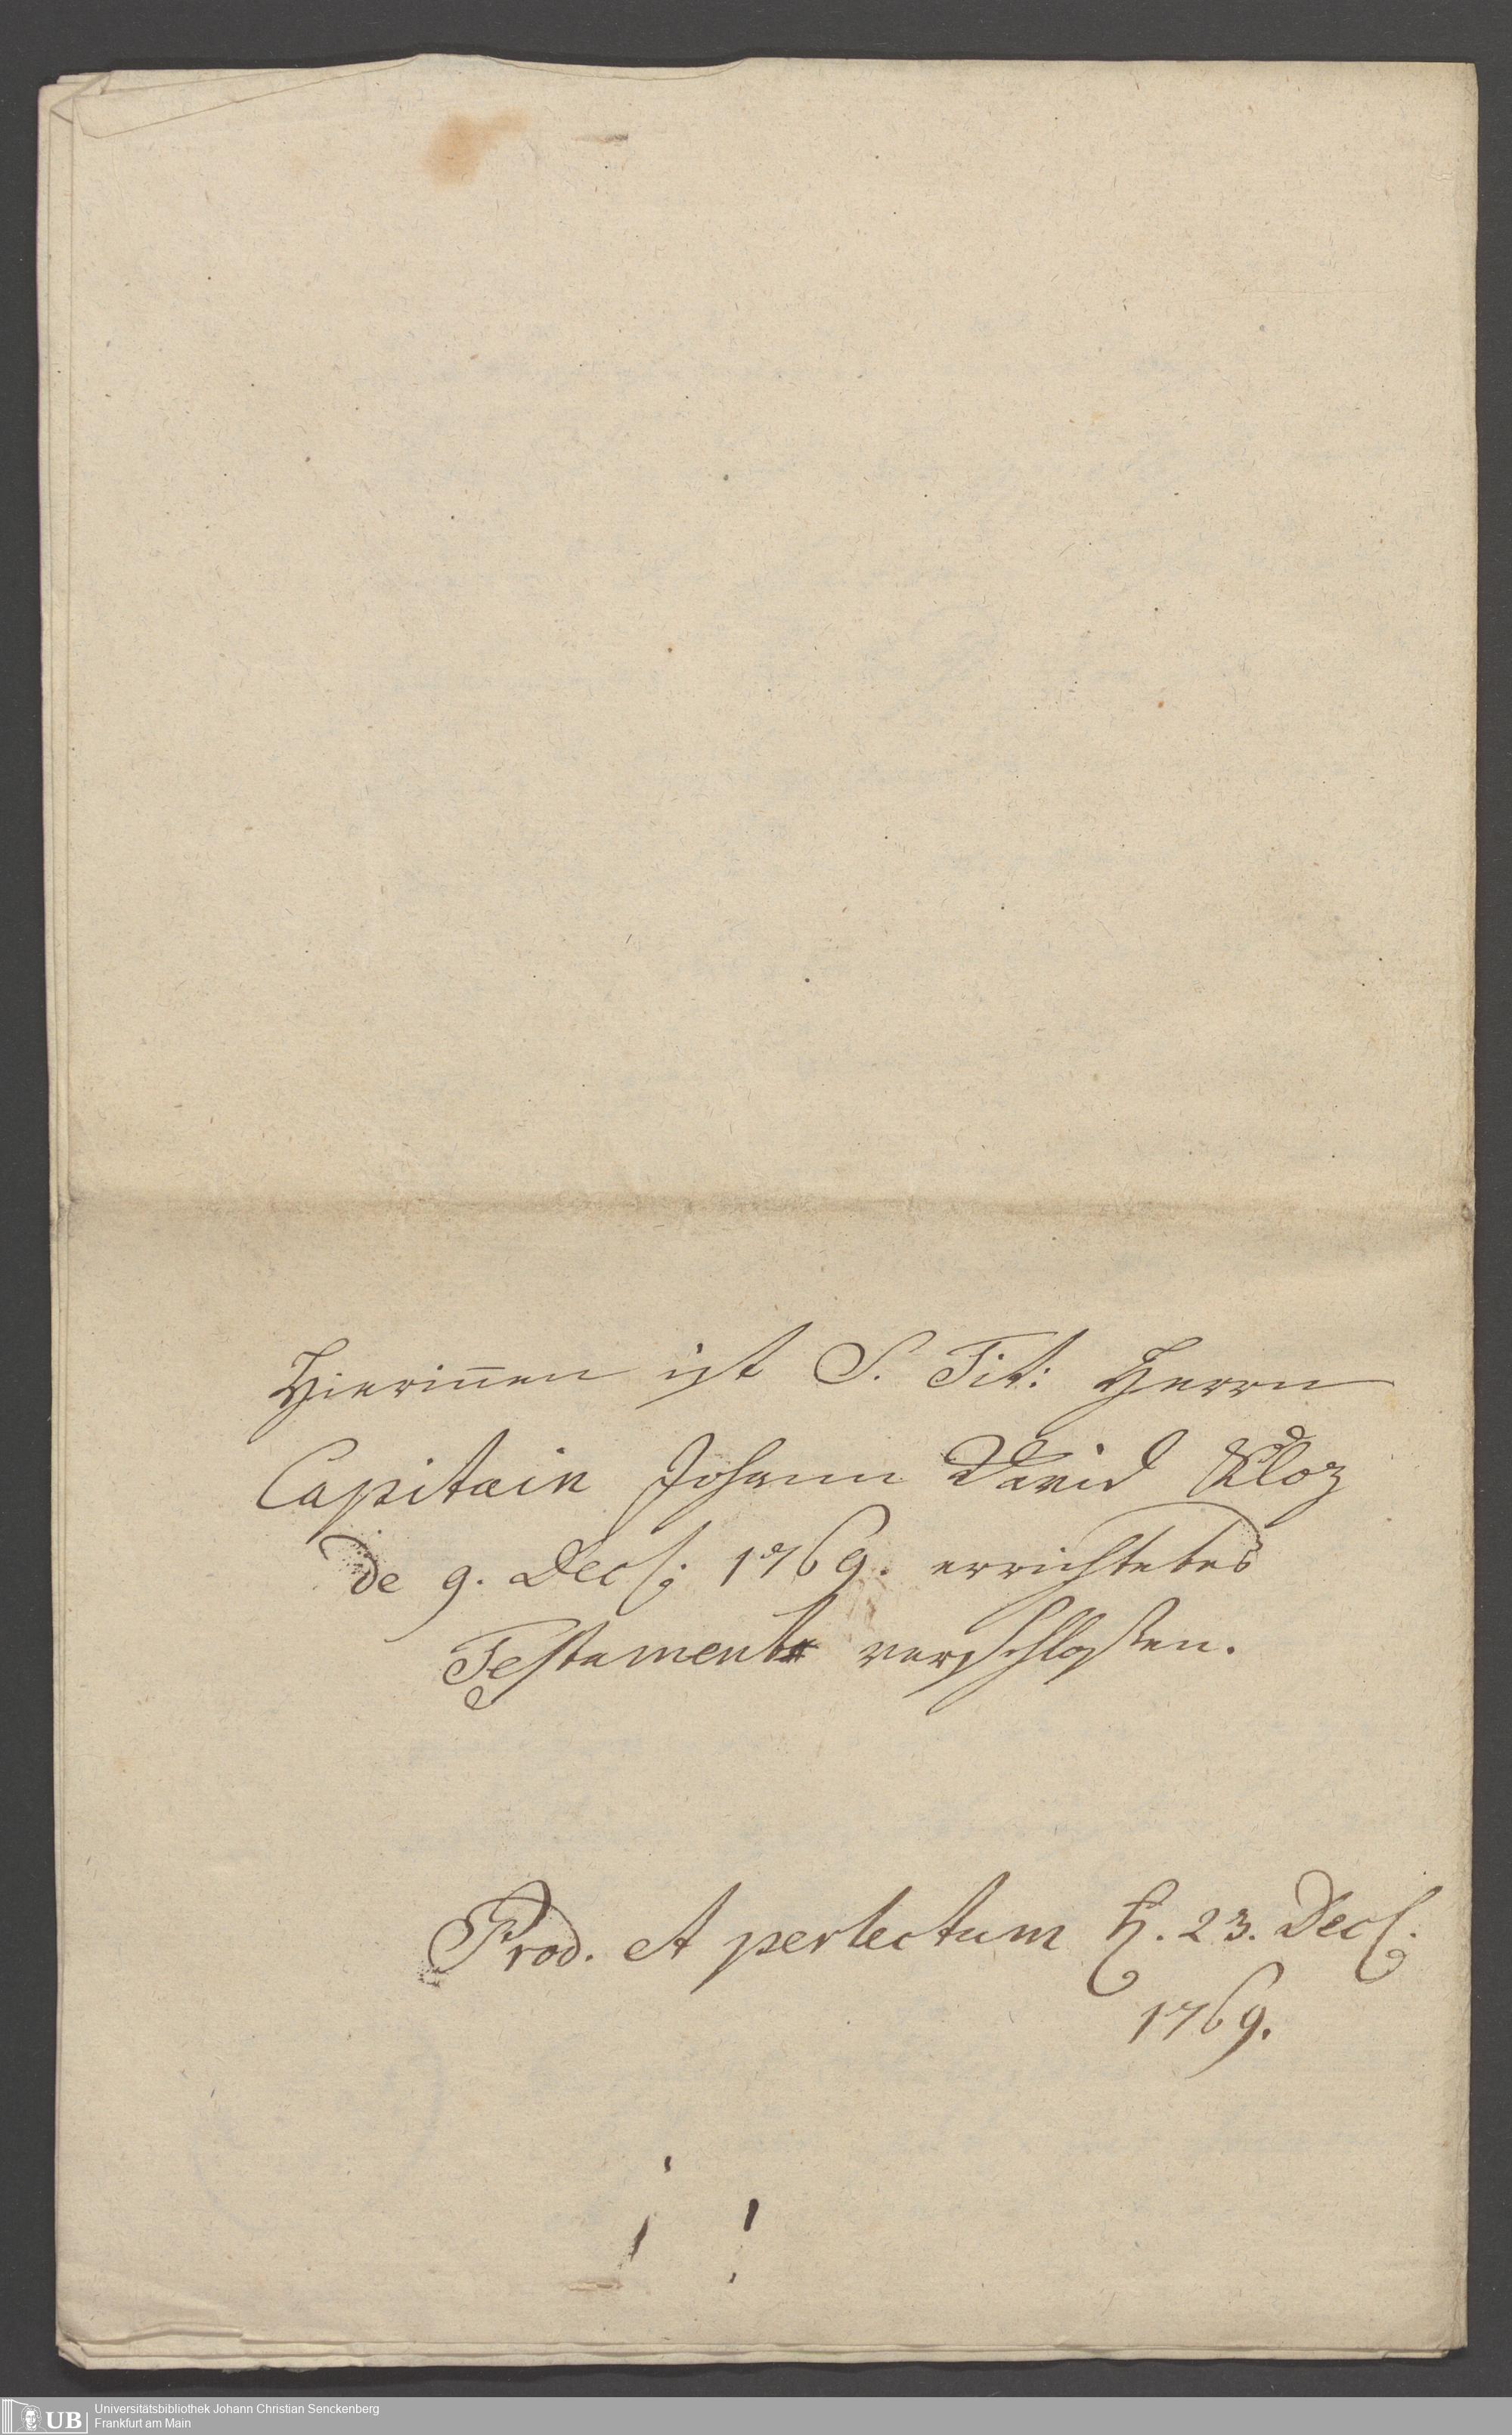 Hierinnen ist S. Tit: Herrn
Capitain Johann David Kloz
de 9. Decb: 1769. errichtetes
Testament verschloßen.
Prod. et perlectum 23. Decb.
1769.
UB Universitätsbibliothek Johann Christian Senckenberg
Frankfurt am Main